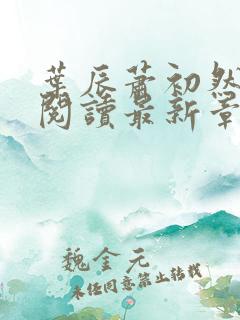 葉辰蕭初然
閱讀最新章
魏金元
未经同意禁止转载